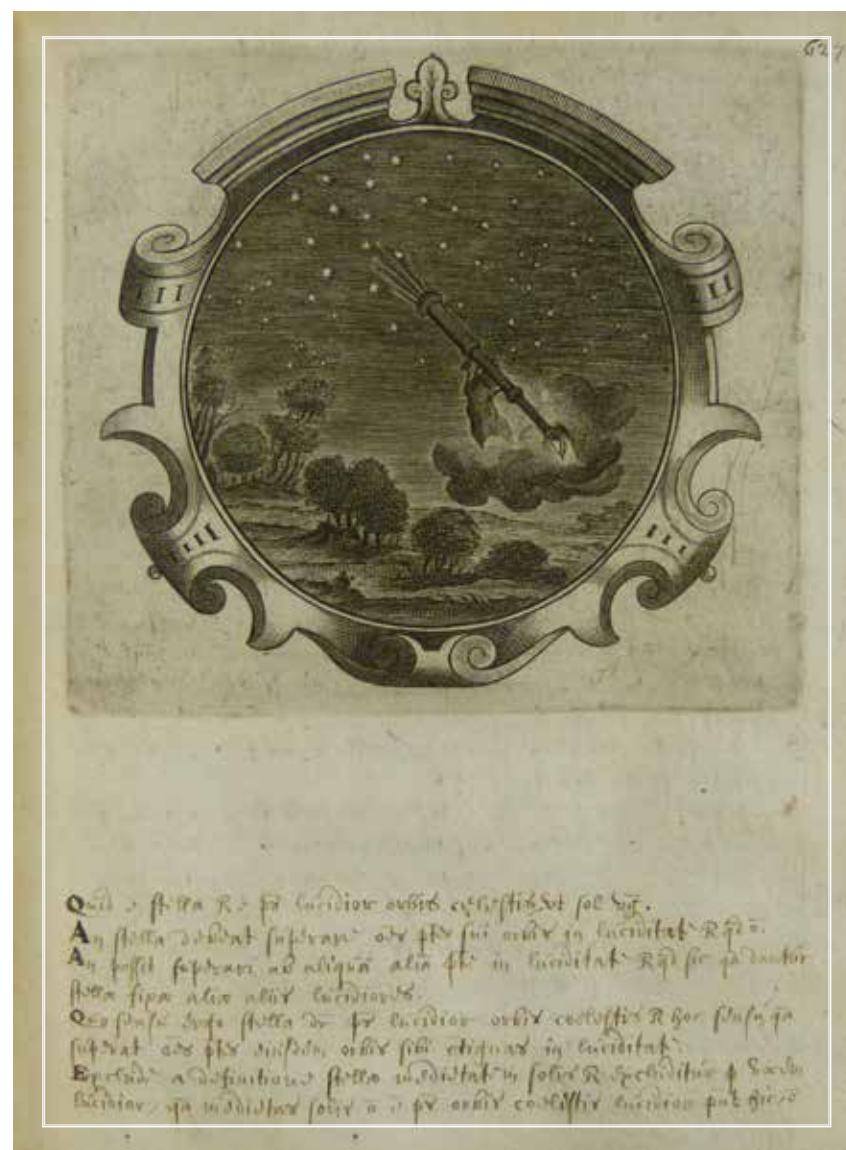 627
III III
III III
Quid e stella R e ps lucidior orbis cęlestis ut sol
An stella debeat superare oes ptes sui orbis in luciditate R qd
An possit superari ab aliqua alia pte in luciditate R qd sic qa dantur
stellæ fixæ aliæ aliis lucidiores.
Quo sensu ergo stella dr ps lucidior orbis coelestis R hoc sensu qa
superat oes ptes eiusdem orbis sibi ctiguas in luciditate.
Exclude a definitione stellæ medietatem solis R excluditur p
lucidior, qa medietas solis e ps orbis coelestis lucidior